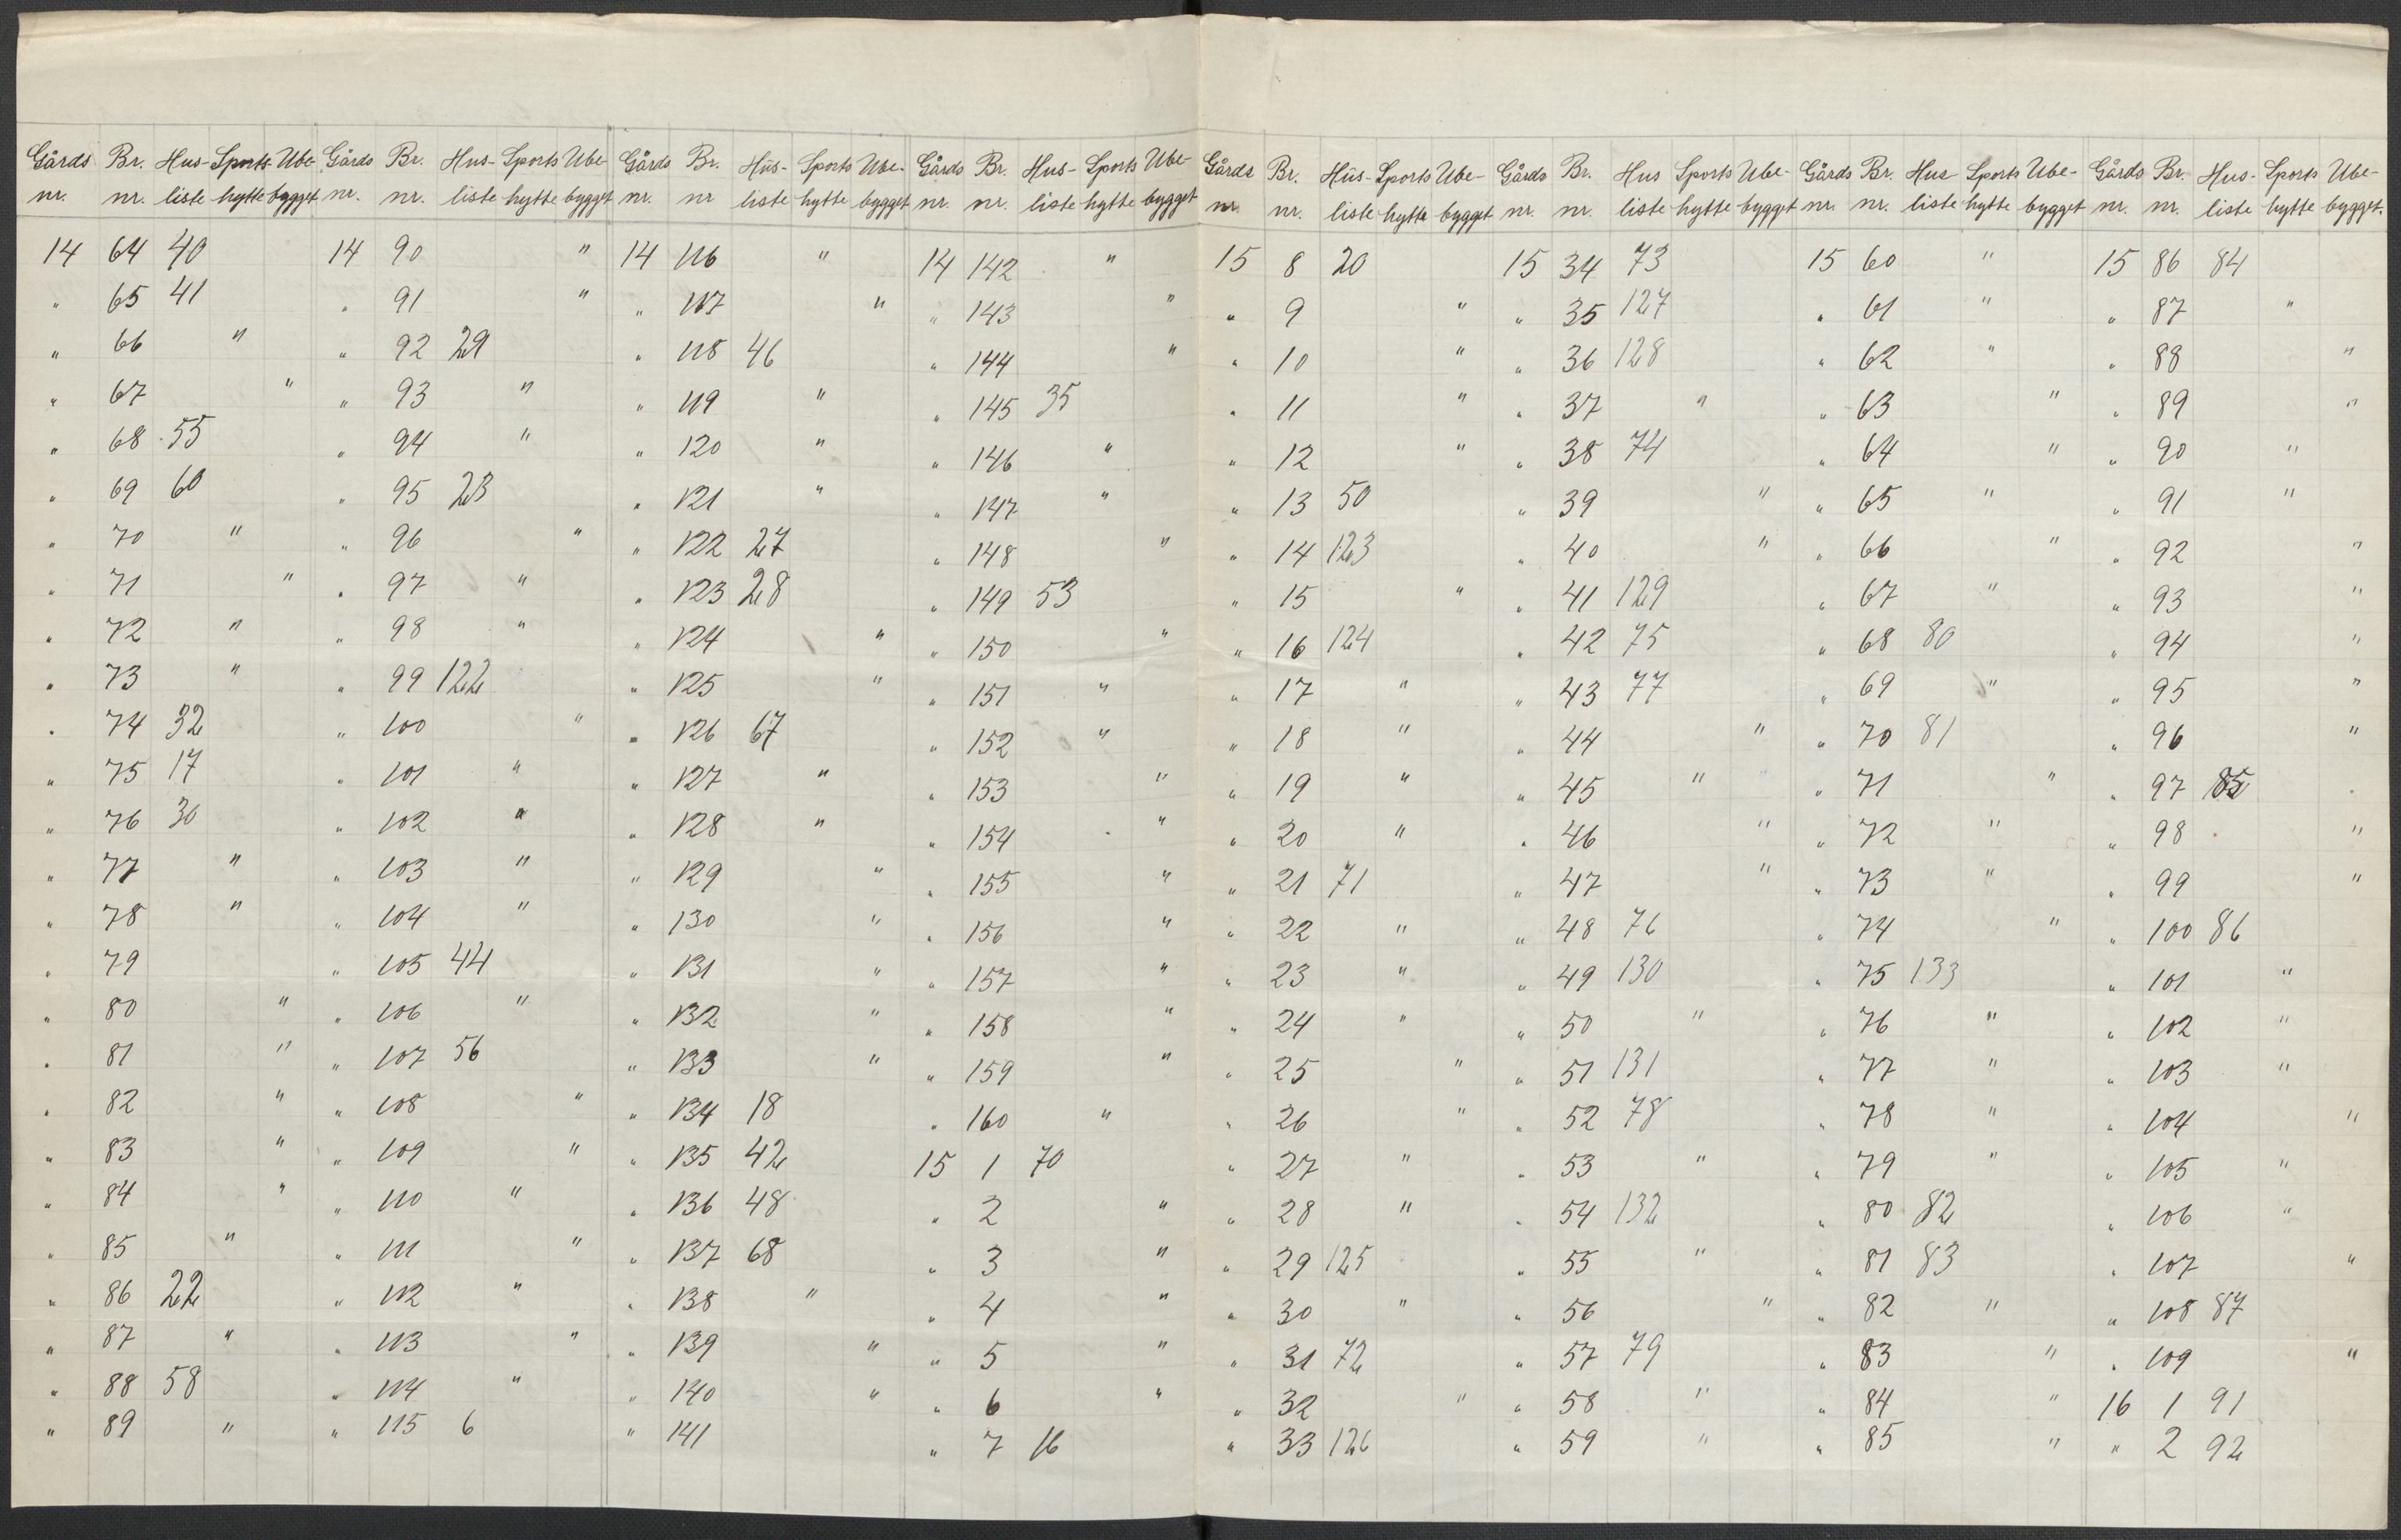 Gårds Br. Hus- Sports- Ube- Gårds Br. Hus- Sports Ube- Gårds Br. Hus- Sports Ube- Gårds Br. Hus- Sports Ube- Gårds Br. Hus- Sports Ube- Gårds Br. Hus Sports Ube- Gårds Br. Hus Sports Ube- Gårds Br. Hus- Sports Ube-
nr. nr. liste hytte bygget nr. nr. liste hytte bygget nr. nr liste hytte bygget nr. nr. liste hytte bygget nr. nr. liste hytte bygget nr. nr. liste hytte bygget nr. nr. liste hytte bygget nr. nr. liste hytte bygget.
14 64 40 14 90 " 14 116 " 14 142 " 15 8 20 15 34 73 15 60 " 15 86 84
" 65 41 " 91 " " 117 " " 143 " " 9 " " 35 127 " 61 " " 87 "
" 66 " " 92 29 " 118 46 " 144 " " 10 " " 36 128 " 62 " " 88 "
" 67 " " 93 " " 119 " " 145 35 " 11 " " 37 " " 63 " " 89 "
" 68 55 " 94 " " 120 " " 146 " " 12 " " 38 74 " 64 " " 90 "
" 69 60 " 95 23 " 121 " " 147 " " 13 50 " 39 " " 65 " " 91 "
" 70 " " 96 " " 122 27 " 148 " " 14 123 " 40 " " 66 " " 92 "
" 71 " " 97 " " 123 28 " 149 53 " 15 " " 41 129 " 67 " " 93 "
" 72 " " 98 " " 124 " " 150 " " 16 124 " 42 75 " 68 80 " 94 "
" 73 " " 99 122 " 125 " " 151 " " 17 " " 43 77 " 69 " " 95 "
" 74 32 " 100 " " 126 67 " 152 " " 18 " " 44 " " 70 81 " 96 "
" 75 17 " 101 " " 127 " " 153 " " 19 " " 45 " " 71 " " 97 85
" 76 30 " 102 " " 128 " " 154 " " 20 " " 46 " " 72 " " 98 "
" 77 " " 103 " " 129 " " 155 " " 21 71 " 47 " " 73 " " 99 "
" 78 " " 104 " " 130 " " 156 " " 22 " " 48 76 " 74 " " 100 86
" 79 " 105 44 " 131 " " 157 " " 23 " " 49 130 " 75 133 " 101 "
" 80 " " 106 " " 132 " " 158 " " 24 " " 50 " " 76 " " 102 "
" 81 " " 107 56 " 133 " " 159 " " 25 " " 51 131 " 77 " " 103 "
" 82 " " 108 " " 134 18 " 160 " " 26 " " 52 78 " 78 " " 104 "
" 83 " " 109 " " 135 42 15 1 70 " 27 " " 53 " " 79 " " 105 "
" 84 " " 110 " " 136 48 " 2 " " 28 " " 54 132 " 80 82 " 106 "
" 85 " " 111 " " 137 68 " 3 " " 29 125 " 55 " " 81 83 " 107 "
" 86 22 " 112 " " 138 " " 4 " " 30 " " 56 " " 82 " " 108 87
" 87 " " 113 " " 139 " " 5 " " 31 72 " 57 79 " 83 " " 109 "
" 88 58 " 114 " " 140 " " 6 " " 32 " " 58 " " 84 " 16 1 91
" 89 " " 115 6 " 141 " 7 16 " 33 126 " 59 " " 85 " " 2 92